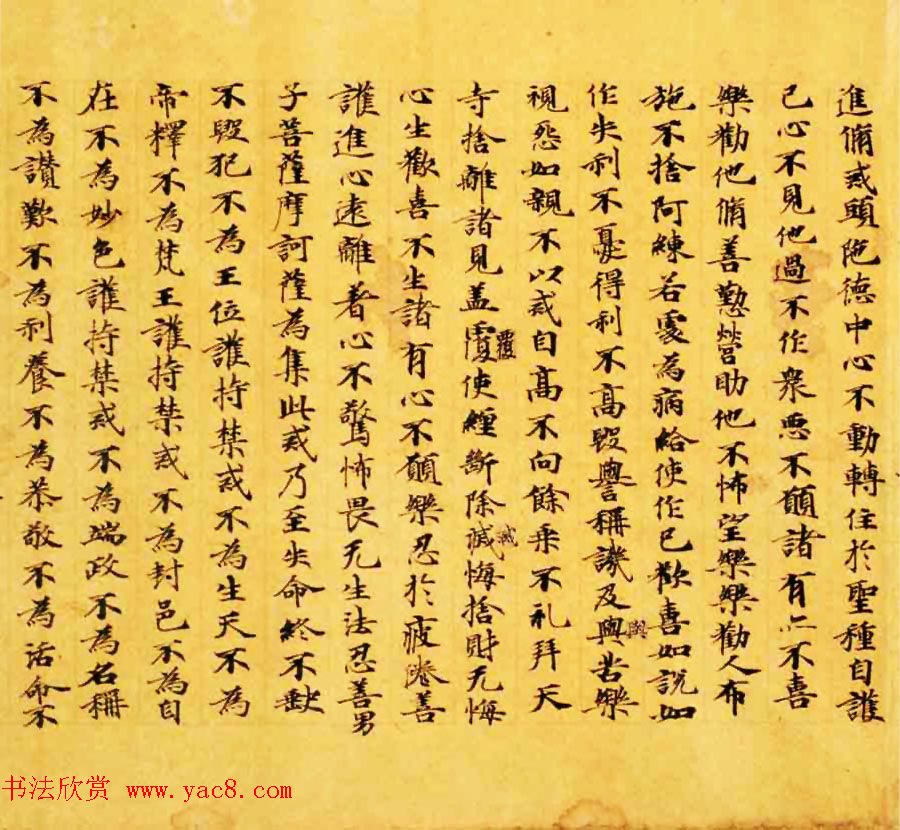 進脩戒頭陁德中心不動轉住於聖種自護
己心不見他過不作衆惡不願諸有亦不喜
樂勸他脩善懃營助他不怖望樂樂勸人布
施不捨阿練若處為病給使作已歡喜如說如
作失利不憂得利不高毀譽稱譏及與苦樂
與
視怨如親不以戒自高不向餘乗不礼拜天
寺捨離諸見盖覆使纏斷除滅悔捨財无悔
覆
滅
心生歡喜不生諸有心不願樂忍於疲惓善
護進心遠離著心不驚怖畏无生法忍善男
子菩薩摩訶薩為集此戒乃至失命終不缺
不毀犯不為王位護持禁戒不為生天不為
帝釋不為梵王護持禁戒不為封邑不為自
在不為妙色護持禁戒不為端政不為名稱
不為讚歎不為利養不為恭敬不為活命不
书法欣赏 www.yac8.com